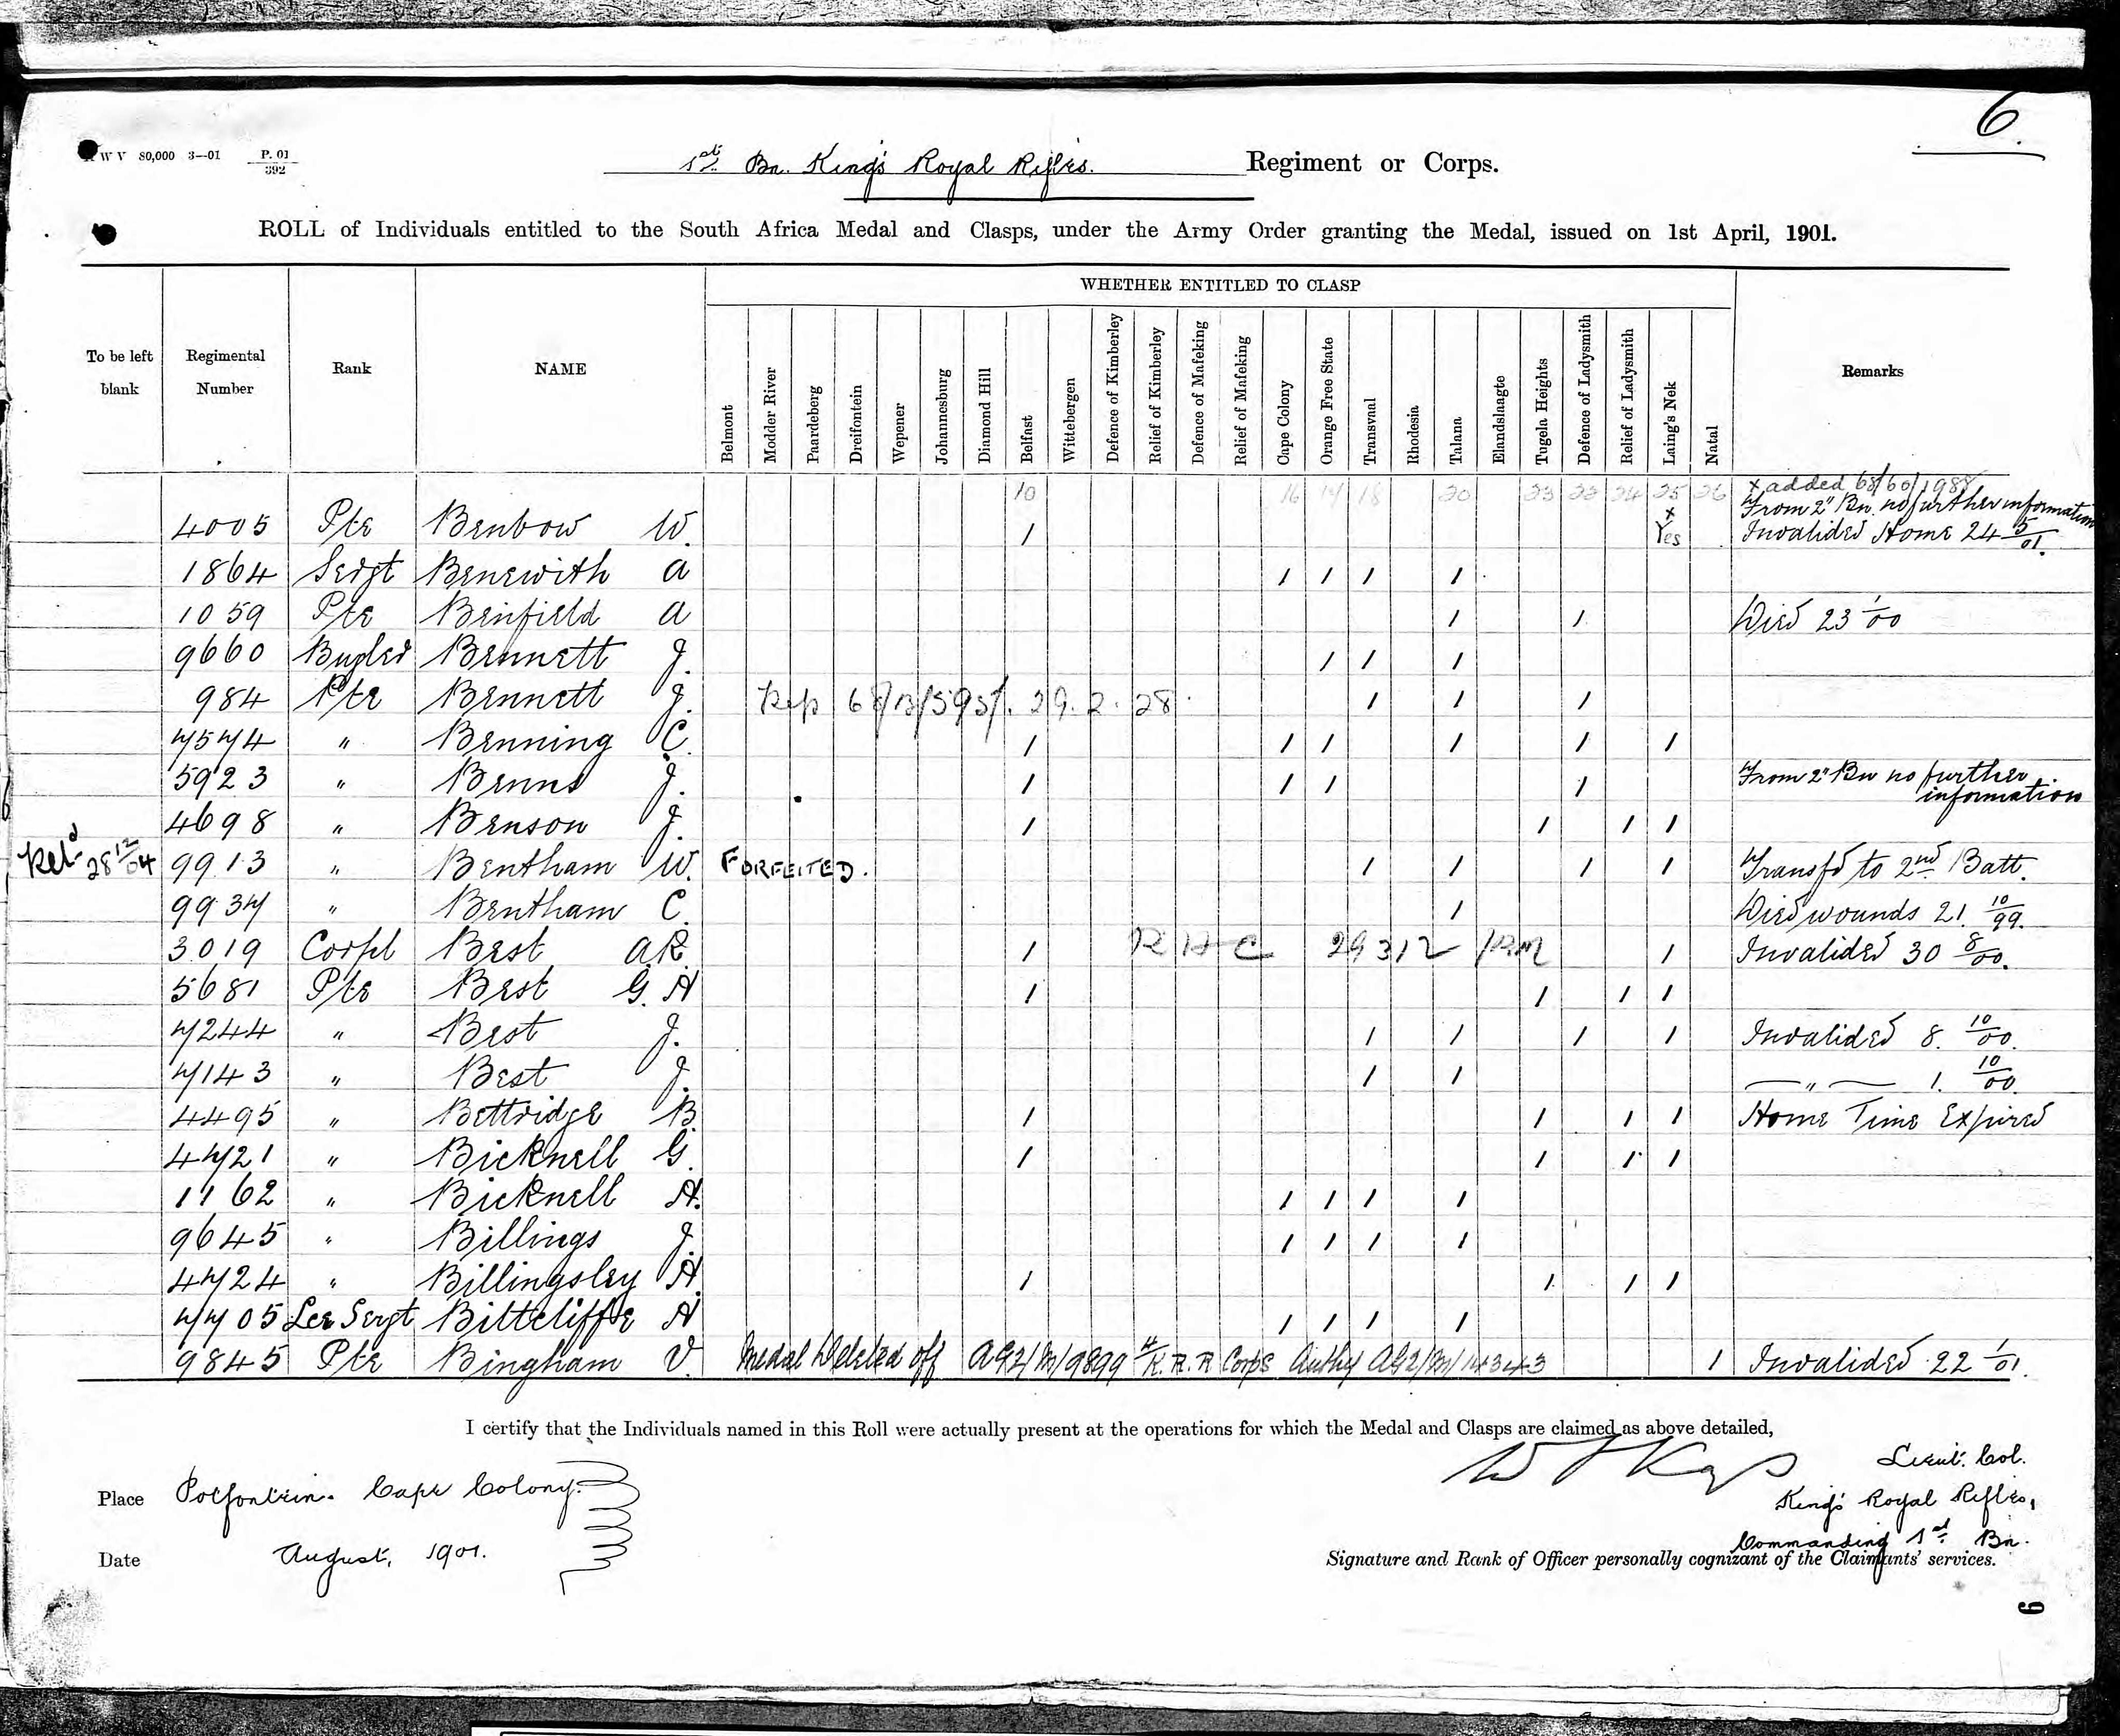 6.
W V 80,000 3—01 P. 01/392
1st Bn. King's Royal Rifles. Regiment or Corps.
ROLL of Individuals entitled to the South Africa Medal and Clasps, under the Army Order granting the Medal, issued on 1st April, 1901.
WHETHER ENTITLED TO CLASP
To be left blank Regimental Number Rank NAME Belmont Modder River Paardeberg Dreifontein Wepener Johannesburg Diamond Hill Belfast Wittebergen Defence of Kimberley Relief of Kimberley Defence of Mafeking Relief of Mafeking Cape Colony Orange Free State Transvaal Rhodesia Talana Elandslaagte Tugela Heights Defence of Ladysmith Relief of Ladysmith Laing's Nek Natal Remarks
10 16 17 18 20 24 25 26 x added 68/60/1988
From 2" Bn. no further information
4005 Pte Benbow W. 1 x Yes Invalided Home 24 5/01.
1864 Sergt Benewith A 1 1 1 1
1059 Pte Benfield A 1 1 Died 23 1/00
9660 Bugler Bennett J. 1 1 1
984 Pte Bennett J. Rep 68/B/595/. 29. 2. 28. 1 1 1
7574 " Benning C. 1 1 1 1 1 1
5923 " Benns J. 1 1 1 1 From 2" Bn no further information
4698 " Benson J. 1 1 1 1
Retd 28 12/04 9913 " Bentham W. FORFEITED. 1 1 1 1 Transfd to 2nd Batt.
9937 " Bentham C. 1 Died wounds 21. 10/99.
3019 Corpl Best A.R. 1 29312 1 Invalided 30 8/00.
5681 Pte Best G. H 1 1 1 1
7244 " Best J. 1 1 1 1 Invalided 8. 10/00.
7143 " Best J. 1 1 — " — 1. 10/00.
4495 " Bettridge B. 1 1 1 1 Home Time Expired
4721 " Bicknell G. 1 1 1 1
1162 " Bicknell H. 1 1 1 1
9645 " Billings J. 1 1 1 1
4724 " Billingsley H. 1 1 1 1
7705 Lce Sergt Bittcliffe H 1 1 1 1
9845 Pte Bingham V. Medal Deleted off AG2/M/9899 K.R.R Corps Authy AG2/M/14343 1 Invalided 22 1/01.
I certify that the Individuals named in this Roll were actually present at the operations for which the Medal and Clasps are claimed as above detailed,
Lieut. Col.
Place Potfontein. Cape Colony. King's Royal Rifles,
Commanding 1st Bn.
Date August, 1901. Signature and Rank of Officer personally cognizant of the Claimants' services.
6